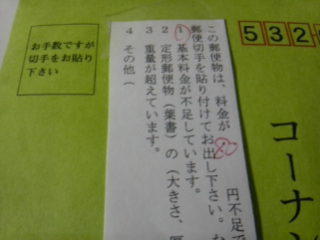 お手数ですが
切手をお貼り
下さい
この郵便物は、料金が
円不足で
郵便切手を貼り付けてお出し下さい。な
1 基本料金が不足しています。
2 定形郵便物(葉書)の(大きさ、厚
3 重量が超えています。
4 その他(
532
コーナン